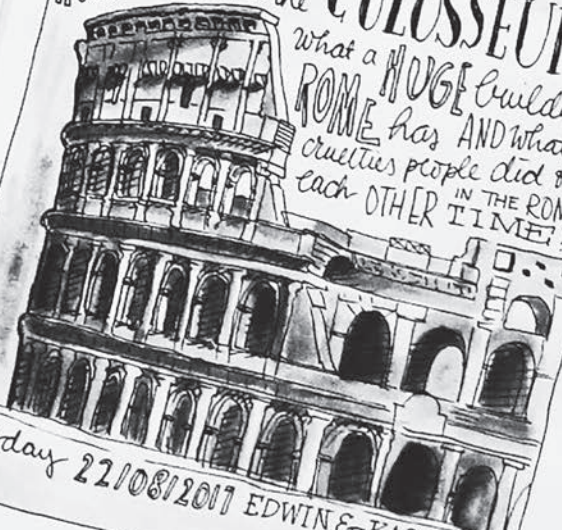 the COLOSSEUM
What a HUGE build
ROME has AND what
cruelties people did
each OTHER IN THE ROM
TIME!
day 22/08/2017 EDWIN &